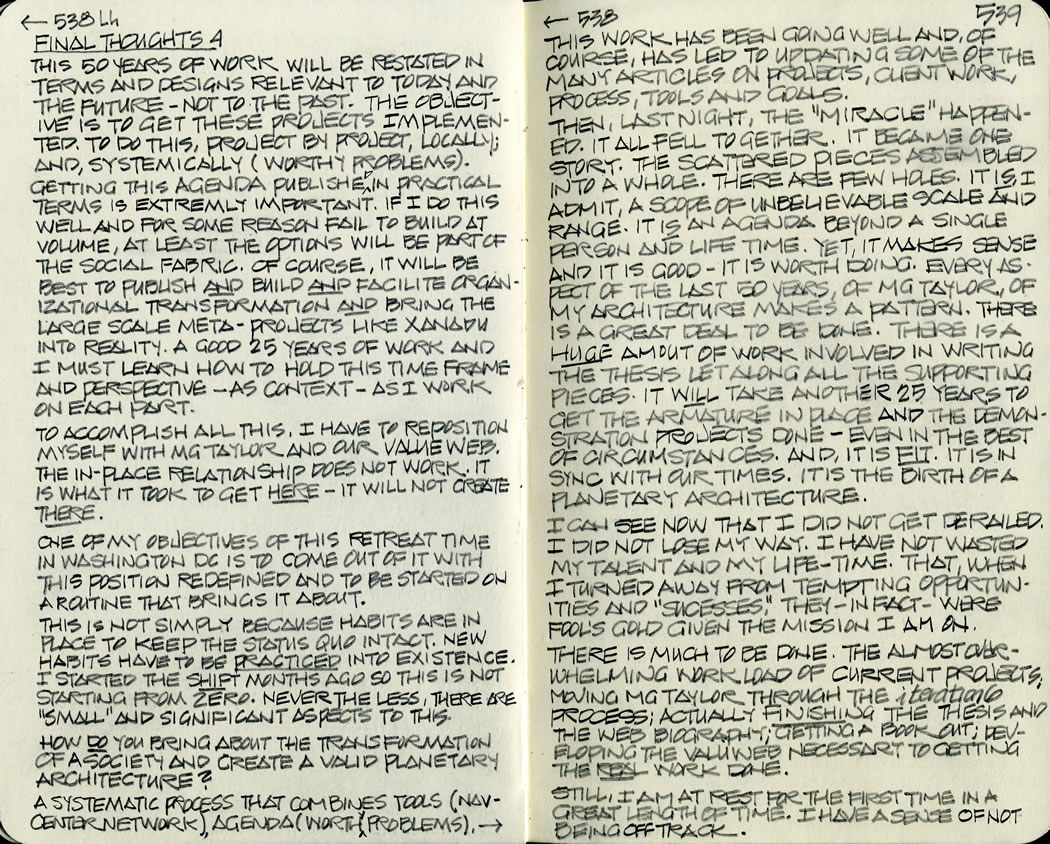 ← 538 Lh
FINAL THOUGHTS 4
THIS 50 YEARS OF WORK WILL BE RESTATED IN
TERMS AND DESIGNS RELEVANT TO TODAY AND
THE FUTURE - NOT TO THE PAST. THE OBJECT-
IVE IS TO GET THESE PROJECTS IMPLEMEN-
TED. TO DO THIS, PROJECT BY PROJECT, LOCALLY;
AND, SYSTEMICALLY (WORTHY PROBLEMS).
GETTING THIS AGENDA PUBLISHED IN PRACTICAL
TERMS IS EXTREMLY IMPORTANT. IF I DO THIS
WELL AND FOR SOME REASON FAIL TO BUILD AT
VOLUME, AT LEAST THE OPTIONS WILL BE PART OF
THE SOCIAL FABRIC. OF COURSE, IT WILL BE
BEST TO PUBLISH AND BUILD AND FACILITE ORGAN-
IZATIONAL TRANSFORMATION AND BRING THE
LARGE SCALE META-PROJECTS LIKE XANADU
INTO REALITY. A GOOD 25 YEARS OF WORK AND
I MUST LEARN HOW TO HOLD THIS TIME FRAME
AND PERSPECTIVE - AS CONTEXT - AS I WORK
ON EACH PART.
TO ACCOMPLISH ALL THIS, I HAVE TO REPOSITION
MYSELF WITH MG TAYLOR AND OUR VALUE WEB.
THE IN-PLACE RELATIONSHIP DOES NOT WORK. IT
IS WHAT IT TOOK TO GET HERE - IT WILL NOT CREATE
THERE.
ONE OF MY OBJECTIVES OF THIS RETREAT TIME
IN WASHINGTON DC IS TO COME OUT OF IT WITH
THIS POSITION REDEFINED AND TO BE STARTED ON
A ROUTINE THAT BRINGS IT ABOUT.
THIS IS NOT SIMPLY BECAUSE HABITS ARE IN
PLACE TO KEEP THE STATUS QUO INTACT. NEW
HABITS HAVE TO BE PRACTICED INTO EXISTENCE.
I STARTED THE SHIFT MONTHS AGO SO THIS IS NOT
STARTING FROM ZERO. NEVER THE LESS, THERE ARE
"SMALL" AND SIGNIFICANT ASPECTS TO THIS.
HOW DO YOU BRING ABOUT THE TRANSFORMATION
OF A SOCIETY AND CREATE A VALID PLANETARY
ARCHITECTURE?
A SYSTEMATIC PROCESS THAT COMBINES TOOLS (NAV-
CENTER NETWORK), AGENDA (WORTHY PROBLEMS), →
← 538
539
THIS WORK HAS BEEN GOING WELL AND, OF
COURSE, HAS LED TO UPDATING SOME OF THE
MANY ARTICLES ON PROJECTS, CLIENT WORK,
PROCESS, TOOLS AND GOALS.
THEN, LAST NIGHT, THE "MIRACLE" HAPPEN-
ED. IT ALL FELL TO GETHER. IT BECAME ONE
STORY. THE SCATTERED PIECES ASSEMBLED
INTO A WHOLE. THERE ARE FEW HOLES. IT IS, I
ADMIT, A SCOPE OF UNBELIEVABLE SCALE AND
RANGE. IT IS AN AGENDA BEYOND A SINGLE
PERSON AND LIFE TIME. YET, IT MAKES SENSE
AND IT IS GOOD - IT IS WORTH DOING. EVERY AS-
PECT OF THE LAST 50 YEARS, OF MG TAYLOR, OF
MY ARCHITECTURE MAKES A PATTERN. THERE
IS A GREAT DEAL TO BE DONE. THERE IS A
HUGE AMOUT OF WORK INVOLVED IN WRITING
THE THESIS LET ALONG ALL THE SUPPORTING
PIECES. IT WILL TAKE ANOTHER 25 YEARS TO
GET THE ARMATURE IN PLACE AND THE DEMON-
STRATION PROJECTS DONE - EVEN IN THE BEST
OF CIRCUMSTANCES. AND, IT IS FIT. IT IS IN
SYNC WITH OUR TIMES. IT IS THE BIRTH OF A
PLANETARY ARCHITECTURE.
I CAN SEE NOW THAT I DID NOT GET DERAILED.
I DID NOT LOSE MY WAY. I HAVE NOT WASTED
MY TALENT AND MY LIFE-TIME. THAT, WHEN
I TURNED AWAY FROM TEMPTING OPPORTUN-
ITIES AND "SUCESSES," THEY - IN FACT - WERE
FOOL'S GOLD GIVEN THE MISSION I AM ON.
THERE IS MUCH TO BE DONE. THE ALMOST OVER-
WHELMING WORK LOAD OF CURRENT PROJECTS;
MOVING MG TAYLOR THROUGH THE iteration6
PROCESS; ACTUALLY FINISHING THE THESIS AND
THE WEB BIOGRAPHY; GETTING A BOOK OUT; DEV-
ELOPING THE VALUWEB NECESSARY TO GETTING
THE REAL WORK DONE.
STILL, I AM AT REST FOR THE FIRST TIME IN A
GREAT LENGTH OF TIME. I HAVE A SENSE OF NOT
BEING OFF TRACK.